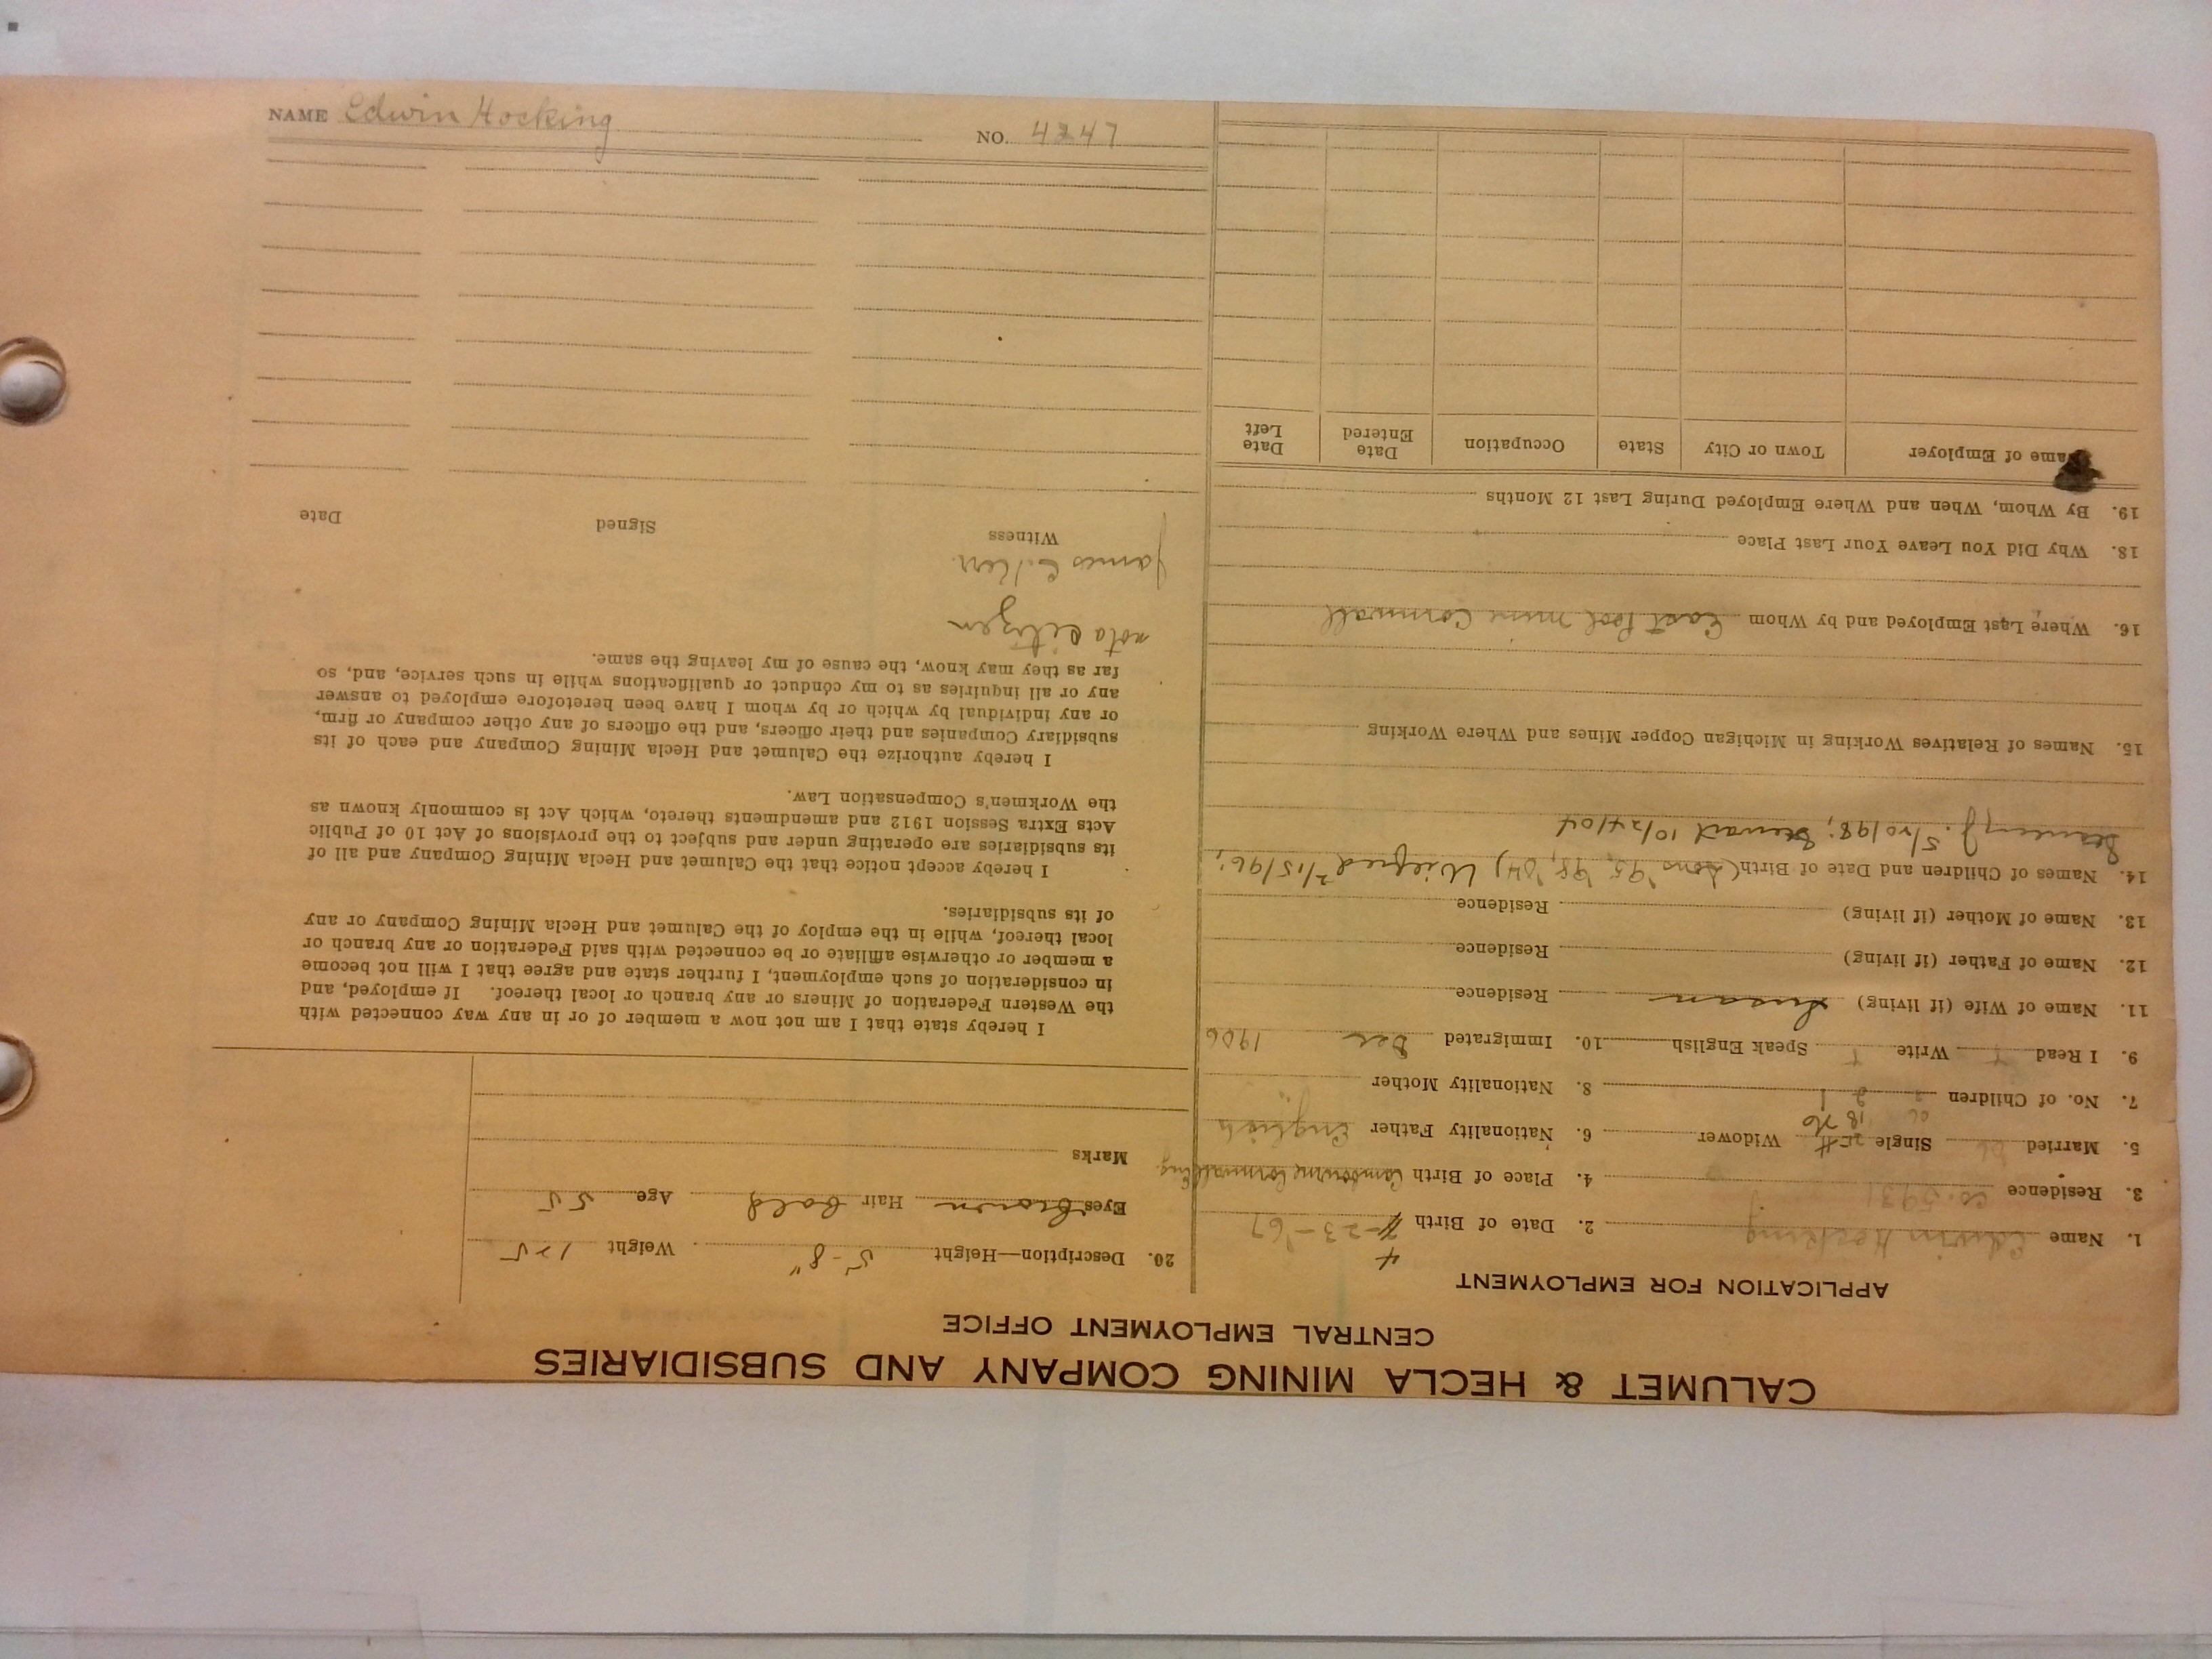 CALUMET & HECLA MINING COMPANY AND SUBSIDIARIES
CENTRAL EMPLOYMENT OFFICE
APPLICATION FOR EMPLOYMENT
1. Name Edwin Hocking 2. Date of Birth 4 -23-'67
3. Residence Co. 5931 4. Place of Birth Cambourne Cornwall Eng.
5. Married Single Widower 6. Nationality Father English
7. No. of Children 8. Nationality Mother "
9. I Read Y Write Y Speak English 10. Immigrated Dec 1906
11. Name of Wife (if living) Susan Residence
12. Name of Father (if living) Residence
13. Name of Mother (if living) Residence
14. Names of Children and Date of Birth (sons '95, '98, '04) Wilfred 2/15/96;
J. 5/20/98; Stewart 10/24/04
15. Names of Relatives Working in Michigan Copper Mines and Where Working
16. Where Last Employed and by Whom East Pool mine Cornwall
18. Why Did You Leave Your Last Place
19. By Whom, When and Where Employed During Last 12 Months
Name of Employer Town or City State Occupation Date Entered Date Left
20. Description—Height 5'-8" Weight 125
Eyes Brown Hair Bald Age 55
Marks
I hereby state that I am not now a member of or in any way connected with
the Western Federation of Miners or any branch or local thereof. If employed, and
in consideration of such employment, I further state and agree that I will not become
a member or otherwise affiliate or be connected with said Federation or any branch or
local thereof, while in the employ of the Calumet and Hecla Mining Company or any
of its subsidiaries.
I hereby accept notice that the Calumet and Hecla Mining Company and all of
its subsidiaries are operating under and subject to the provisions of Act 10 of Public
Acts Extra Session 1912 and amendments thereto, which Act is commonly known as
the Workmen's Compensation Law.
I hereby authorize the Calumet and Hecla Mining Company and each of its
subsidiary Companies and their officers, and the officers of any other company or firm,
or any individual by which or by whom I have been heretofore employed to answer
any or all inquiries as to my conduct or qualifications while in such service, and, so
far as they may know, the cause of my leaving the same.
not a citizen
James C. Kerr
Witness Signed Date
NAME Edwin Hocking NO. 4247